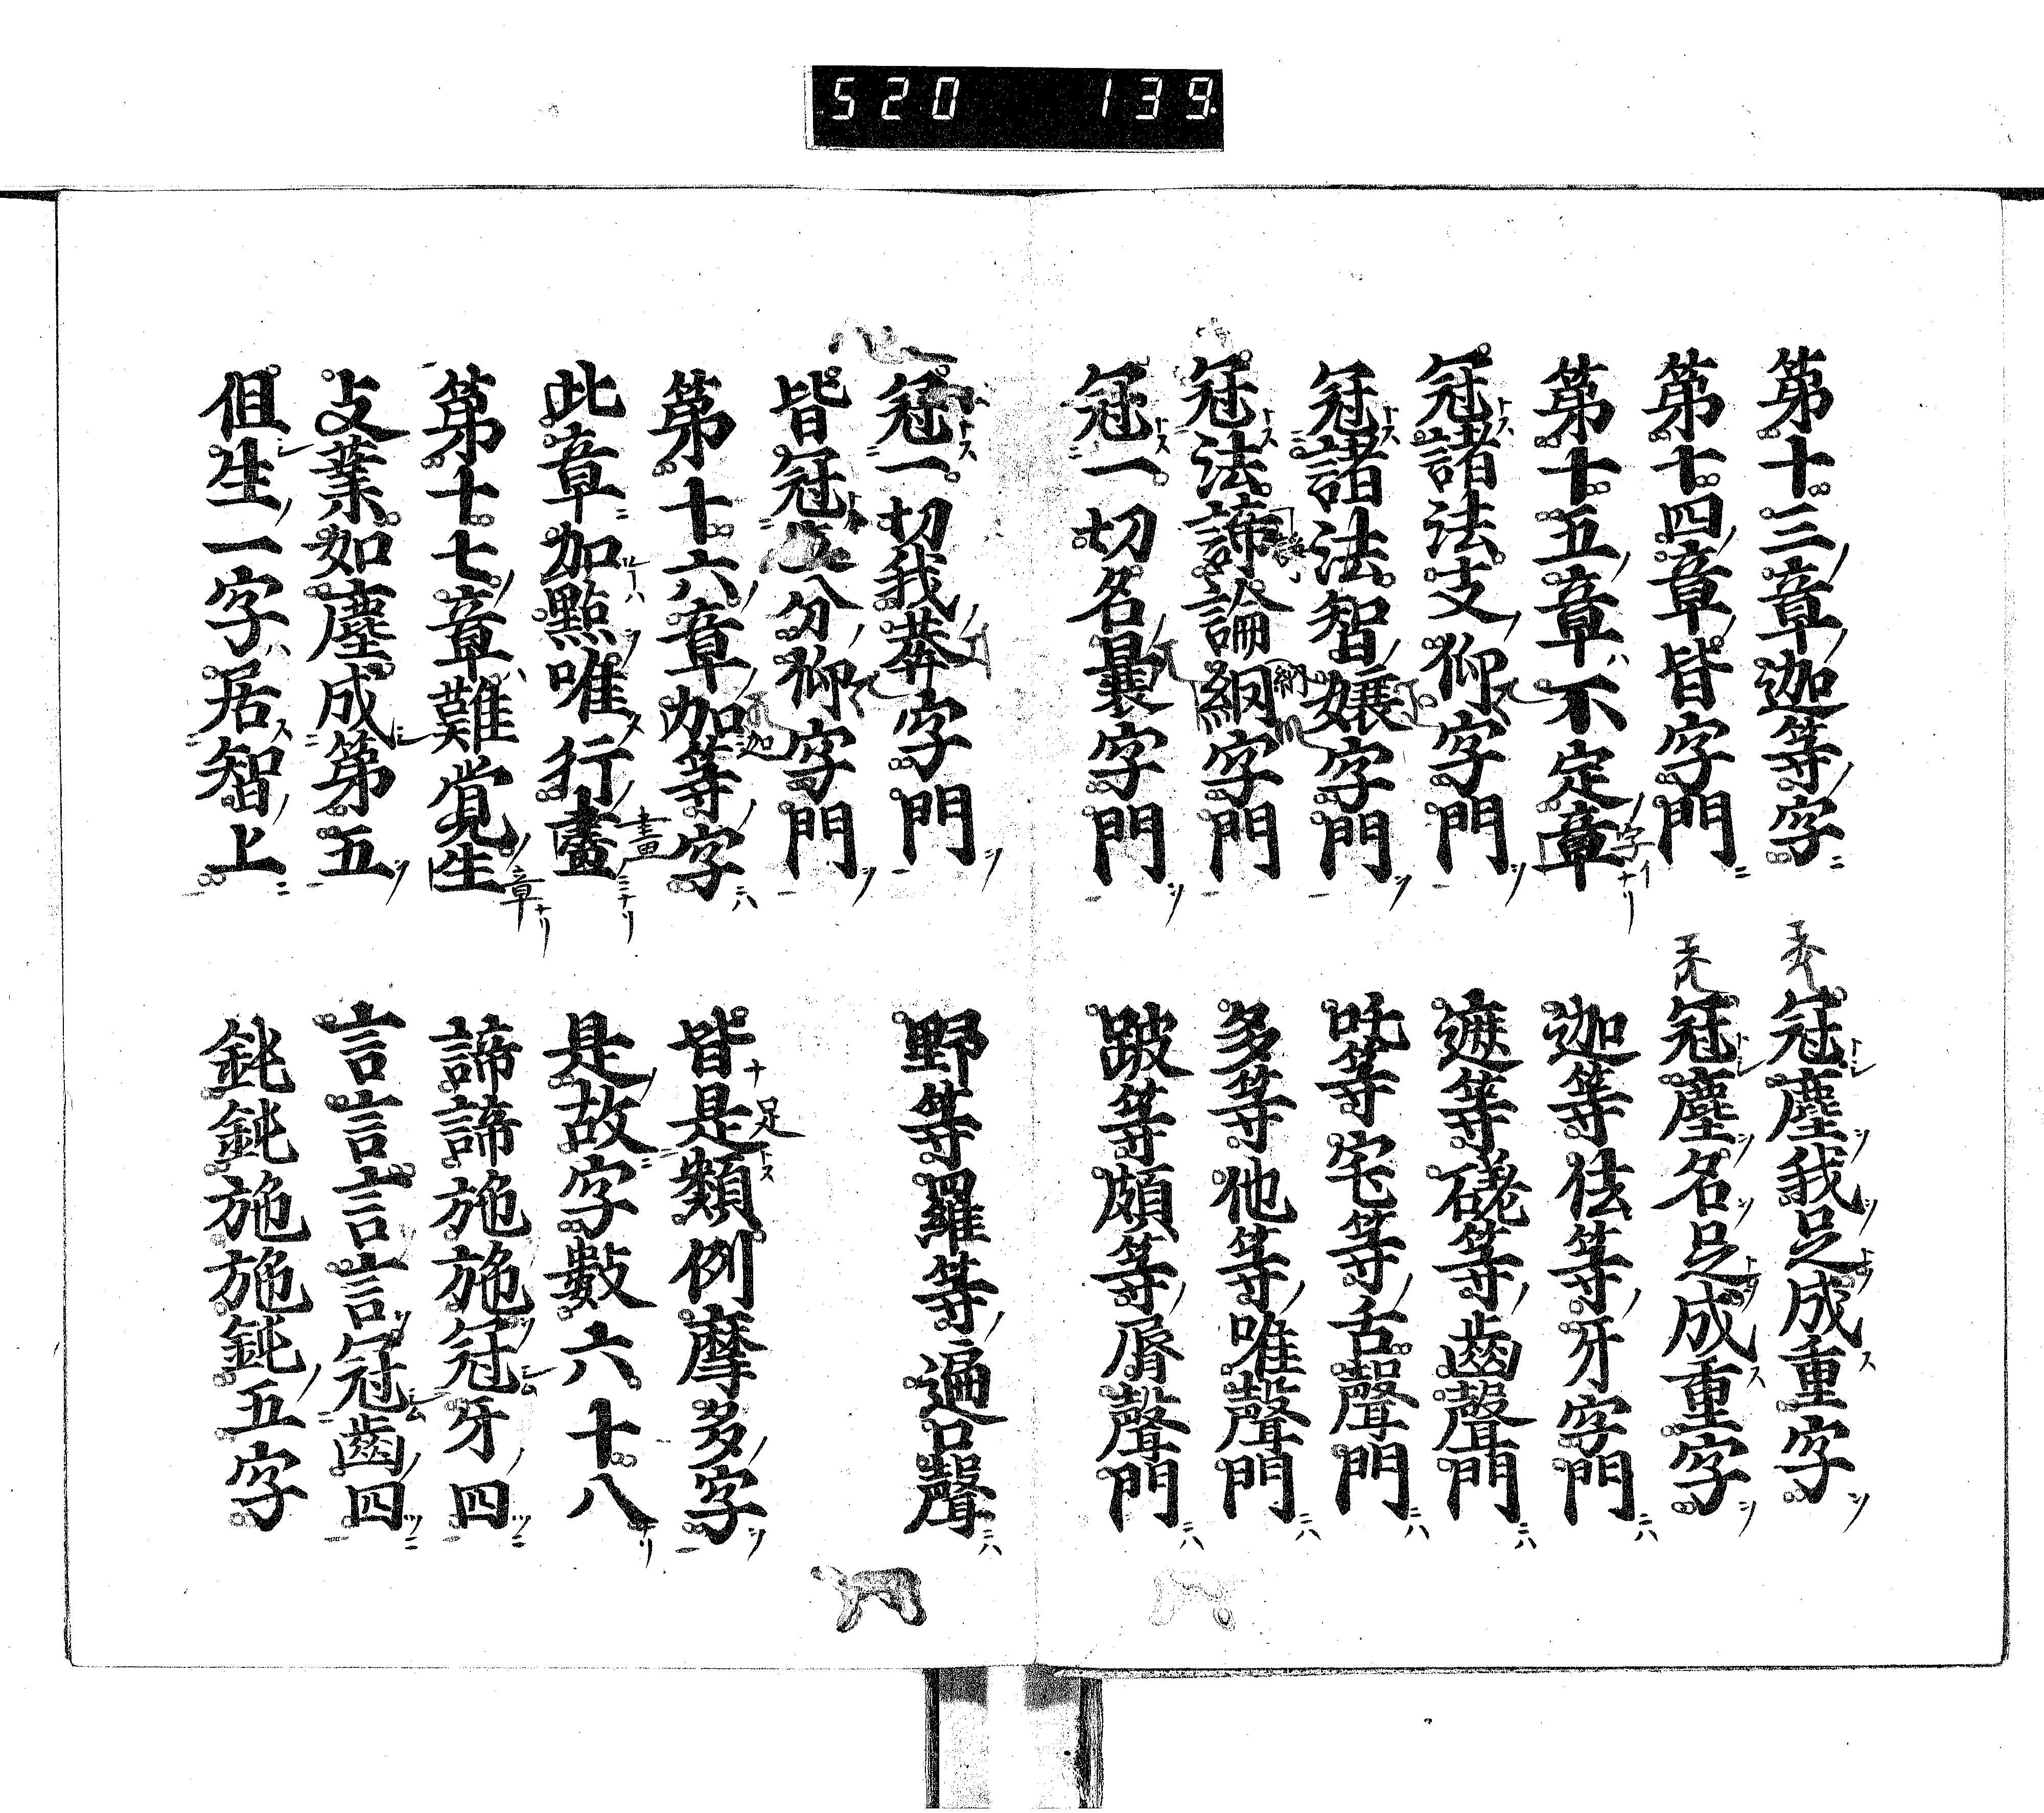 520 139
第十三章迦等字
冠塵我足成重字
第十四章皆字門
冠塵名足成重字
第十五章不定章
迦等佉等牙字門
冠諸法支仰字門
遮等磋等齒聲門
冠諸法智孃字門
吒等宅等舌聲門
冠法諦論絅字門
多等他等唯聲門
冠一切名曩字門
跛等頗等脣聲門
冠一切我莽字門
野等羅等遍口聲
皆冠八分仰字門
第十六章加等字
皆是類例摩多字
此章加點唯行畫
是故字數六十八
第十七章難覚生
諦諦施施冠牙四
攴業如塵成第五
言言言言冠齒四
但生一字居智上
鈍鈍施施鈍五字